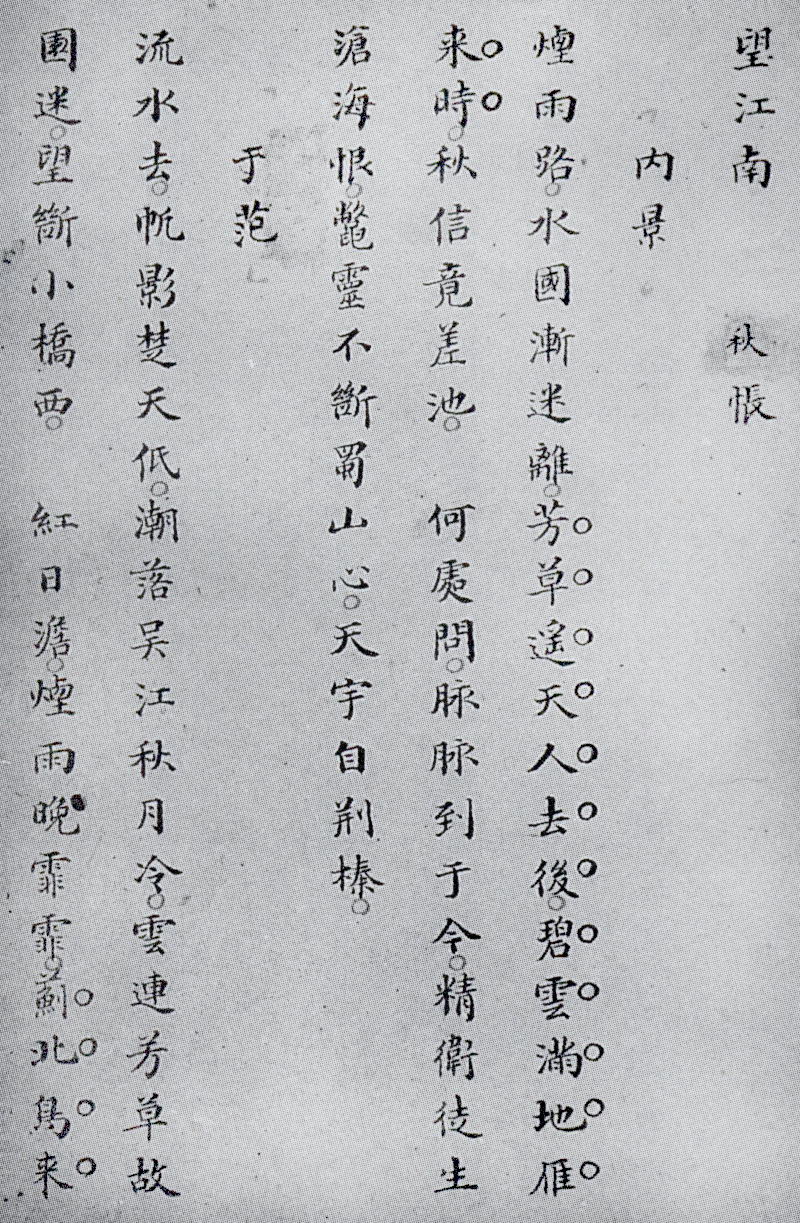 望江南 秋悵
内景
煙雨路水國漸迷離芳草遥天人去後碧雲滿地雁
来時秋信竟差池 何處問脉脉到于今精衛徒生
滄海恨鼈靈不斷蜀山心天宇自荆榛
于范
流水去帆影楚天低潮落吴江秋月冷雲連芳草故
園迷望斷小橋西 紅日澹煙雨晚霏霏薊北鳥来